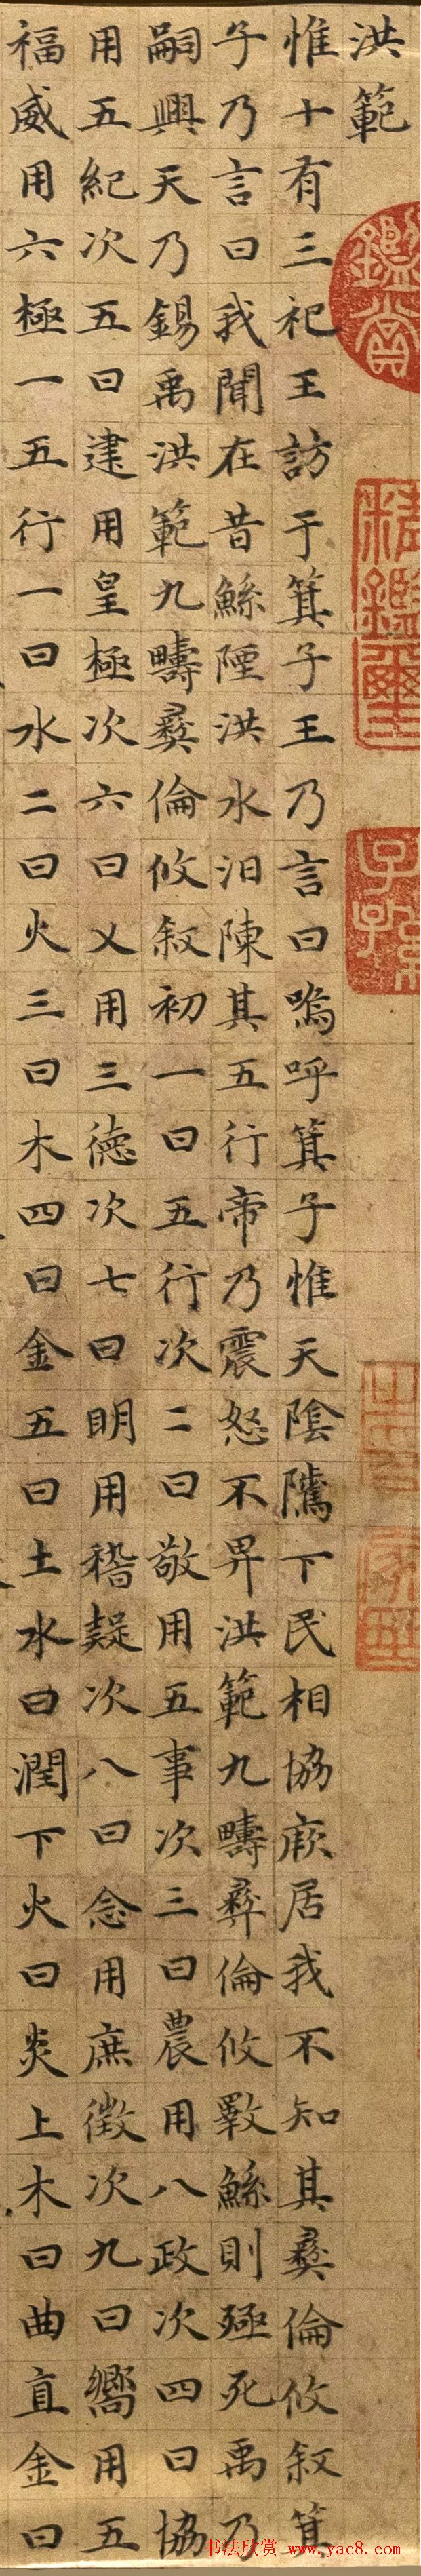 洪範
惟十有三祀王訪于箕子王乃言曰嗚呼箕子惟天陰騭下民相協厥居我不知其彝倫攸叙箕
子乃言曰我聞在昔鯀陻洪水汩陳其五行帝乃震怒不畀洪範九疇彝倫攸斁鯀則殛死禹乃
嗣興天乃錫禹洪範九疇彝倫攸叙初一曰五行次二曰敬用五事次三曰農用八政次四曰協
用五紀次五曰建用皇極次六曰乂用三徳次七曰明用稽疑次八曰念用庶徴次九曰嚮用五
福威用六極一五行一曰水二曰火三曰木四曰金五曰土水曰潤下火曰炎上木曰曲直金曰
鑑賞
精鑑璽
子孫
书法欣赏 www.yac8.com